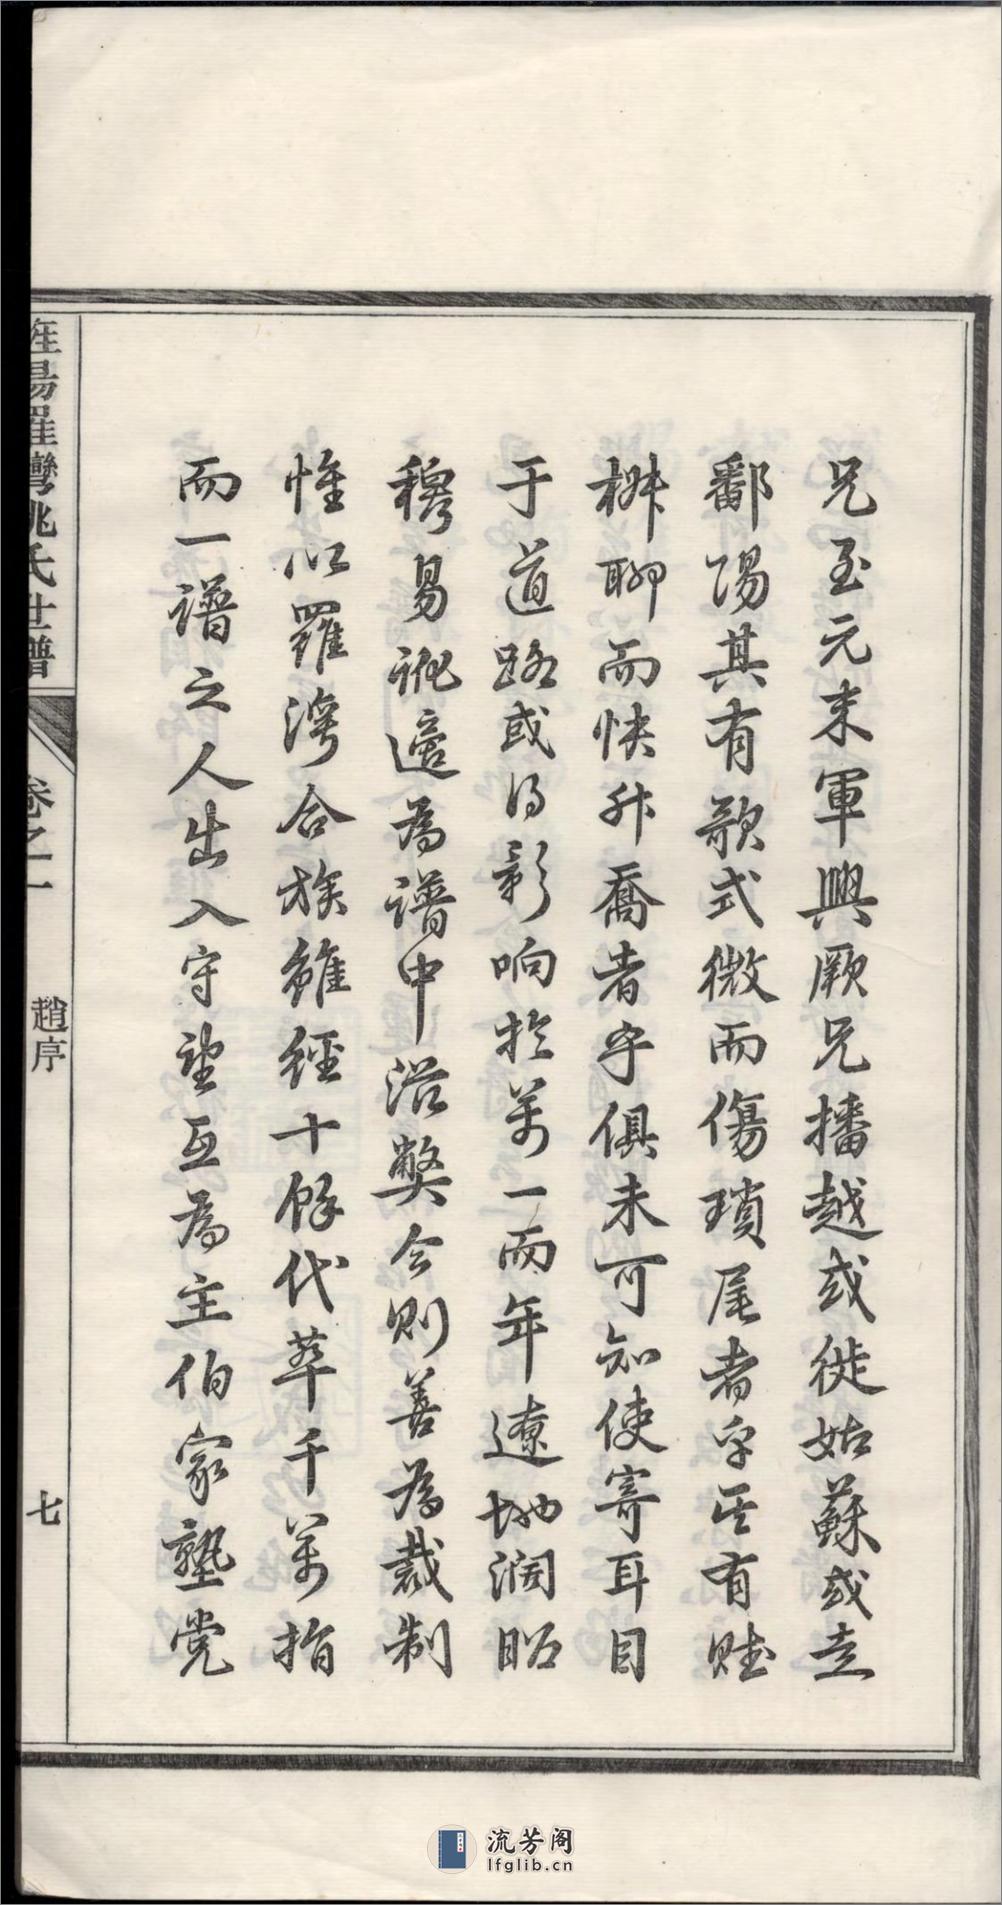 兄至元末軍興厥兄播越或徙姑蘇或走
鄱陽其有歌式微而傷瑣尾者乎其有賦
椒聊而快升喬者乎俱未可知使寄耳目
于道路或得影响於萬一而年遼地濶昭
穆易訛適為譜中沿弊今則善為裁制
惟以羅灣合族雖經十餘代萃千萬指
而一譜之人出入守望互為主伯家塾党
陽羅灣姚氏世譜
卷之一
趙序
七
流芳阁
lfglib.cn